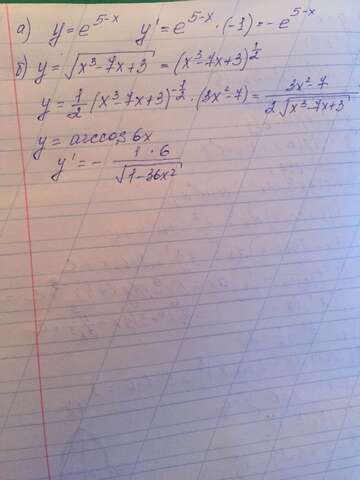 а) y = e^(5-x) y' = e^(5-x) · (-1) = -e^(5-x)
б) y = √(x³-7x+3) = (x³-7x+3)^(1/2)
y = 1/2 (x³-7x+3)^(-1/2) · (3x²-7) = (3x²-7)/(2√(x³-7x+3))
y = arccos 6x
y' = - (1·6)/√(1-36x²)